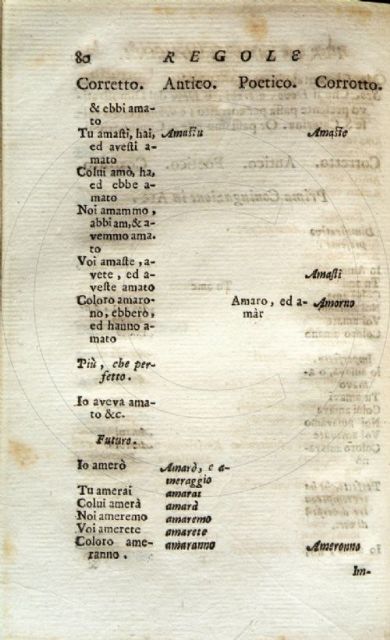 80 REGOLE
Corretto. Antico. Poetico. Corrotto.
& ebbi ama-
to
Tu amasti, hai, Amastu Amaste
ed avesti a-
mato
Colui amò, ha,
ed ebbe a-
mato
Noi amammo,
abbiam, & a-
vemmo ama-
to
Voi amaste, a- Amasti
vete, ed a-
veste amato
Coloro amaro- Amaro, ed a- Amorno
no, ebberò, màr
ed hanno a-
mato
Più, che per-
fetto.
Io aveva ama-
to &c.
Futuro.
Io amerò Amarò, e a-
meraggio
Tu amerai amarai
Colui amerà amarà
Noi ameremo amaremo
Voi amerete amarete
Coloro ame- amaranno Ameronno
ranno.
Im-